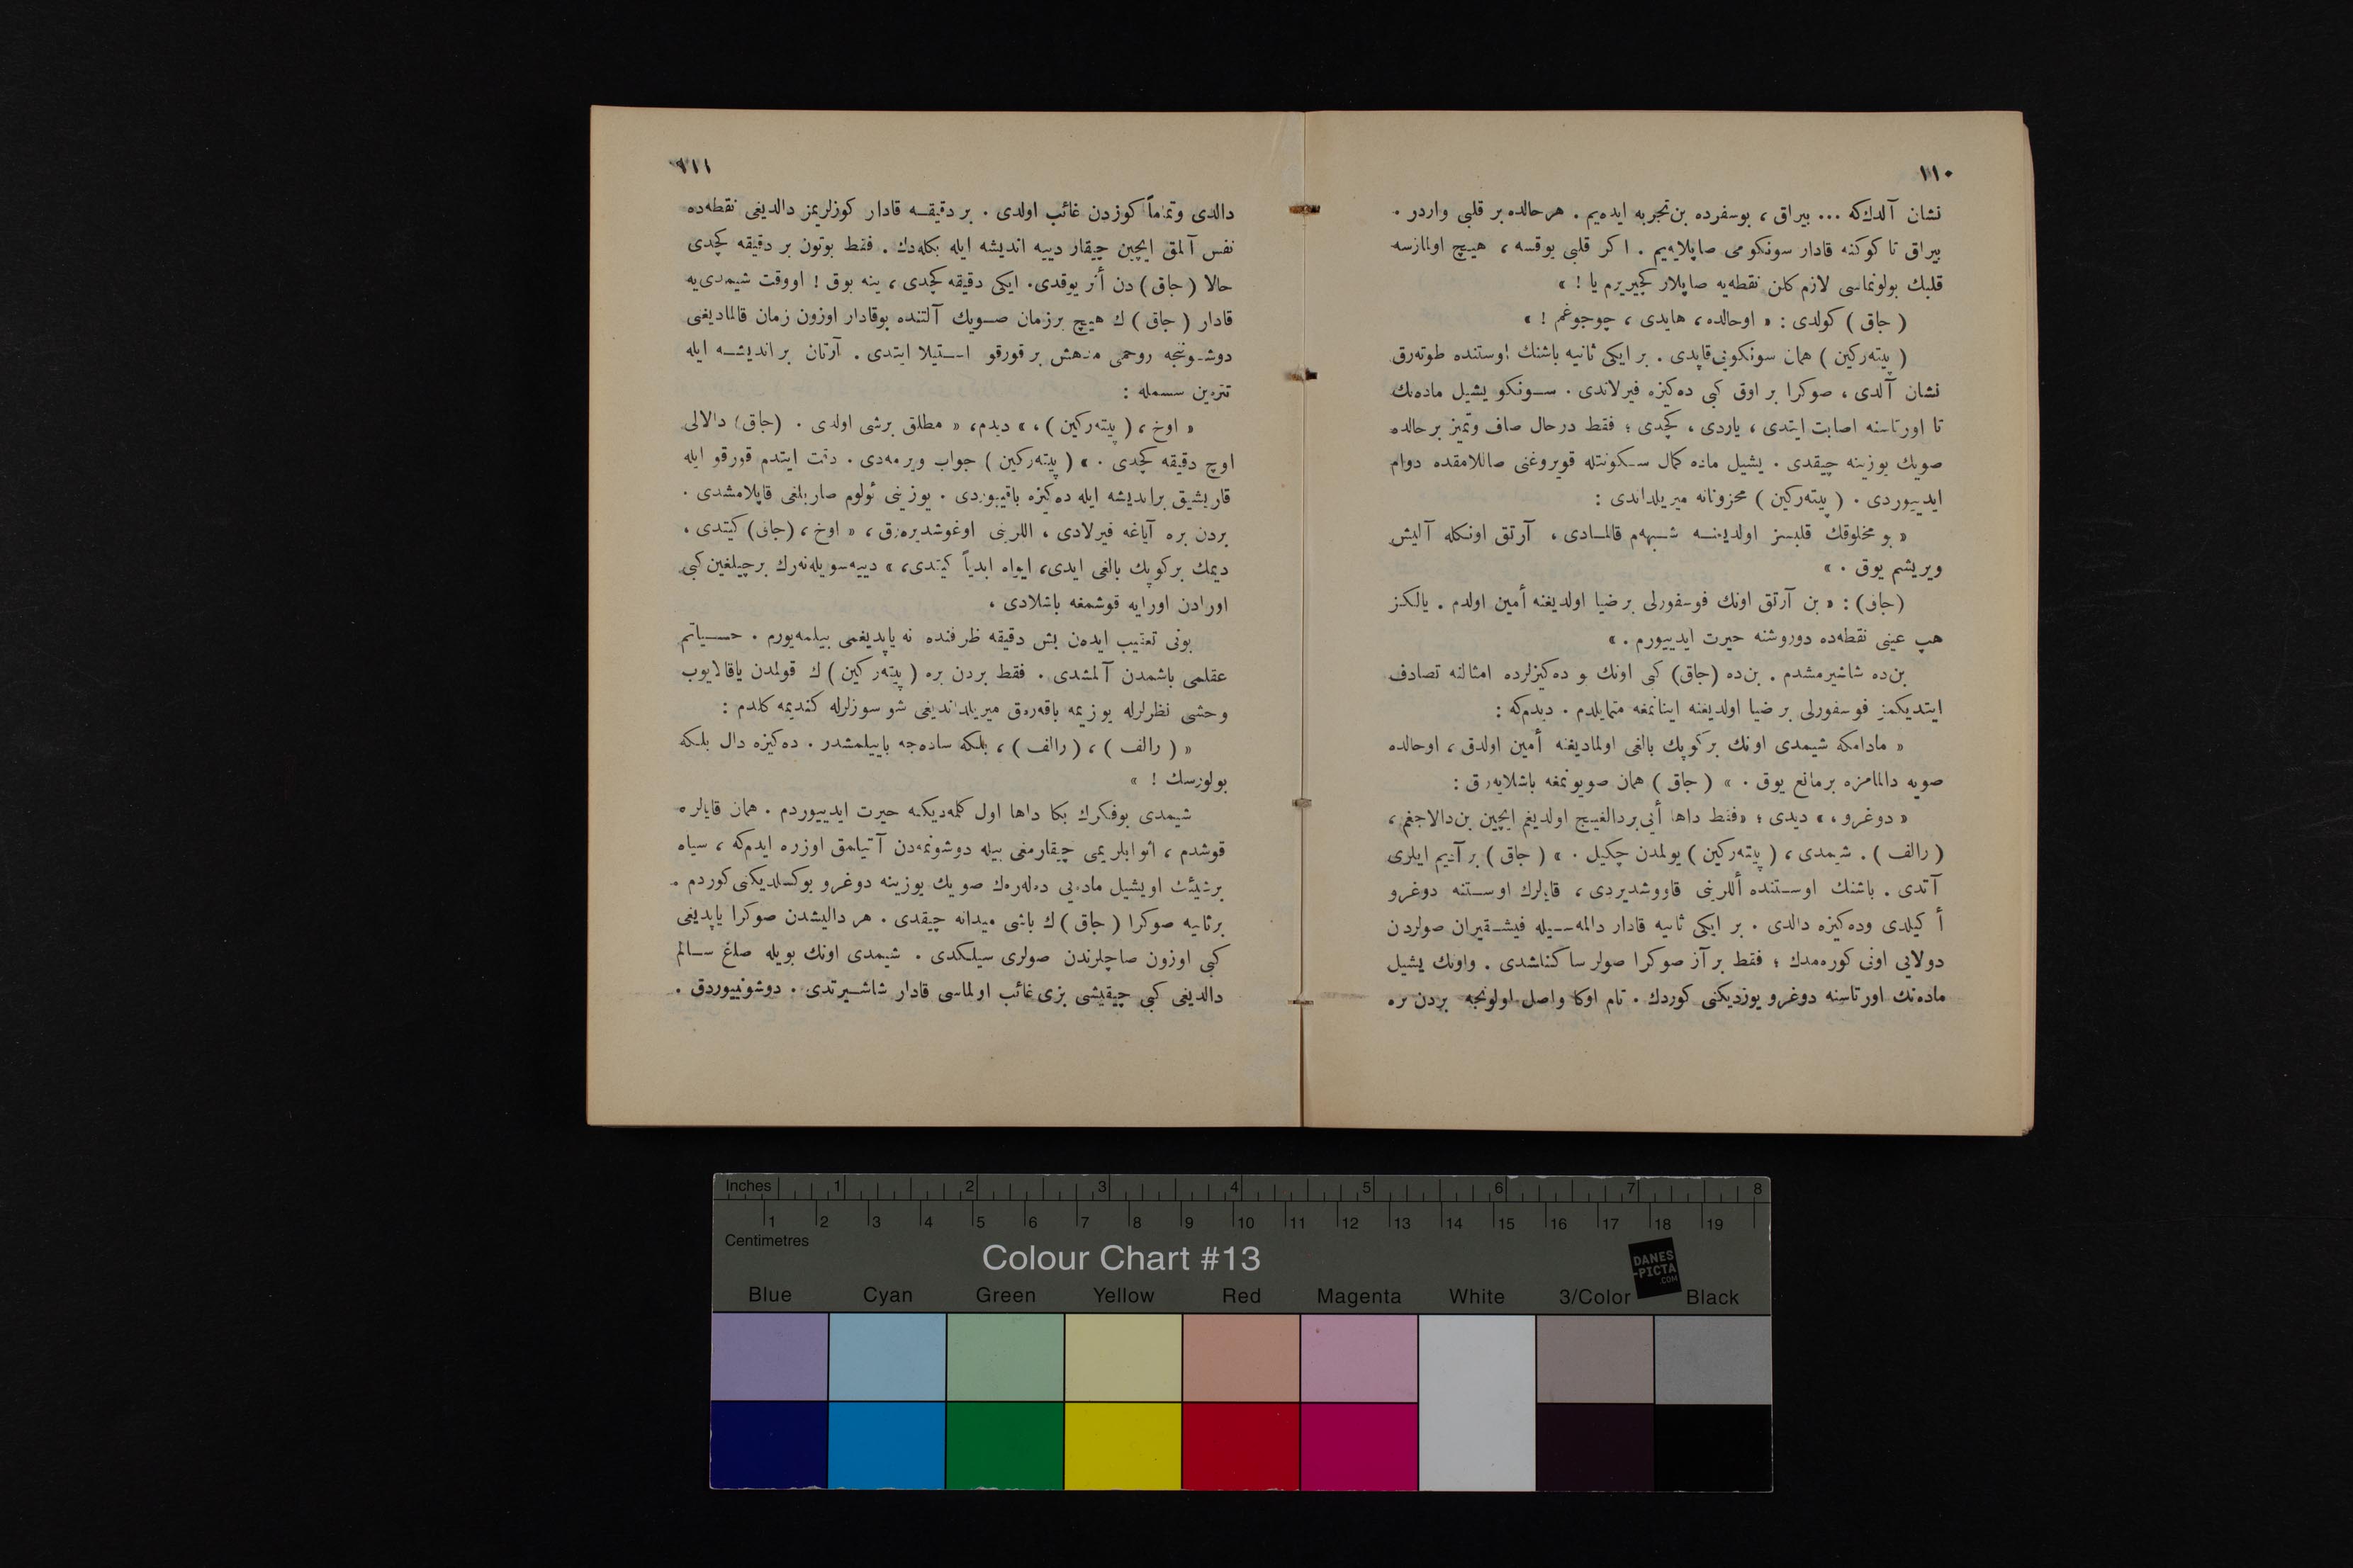 ١١٠
نشان آلدك‌كه ... بيراق ، بوسفرده بن تجربه ايده‌يم . هر حالده بر قلبى واردر .
بيراق تا كوكنه قادار سونكومى صاپلايه‌يم . اكر قلبى يوقسه ، هيچ اولمازسه
قلبك بولونماسى لازم كلن نقطه‌يه صاپلار كچيريرم يا ! »
( جاق ) كولدى : « اوحالده ، هايدى ، چوجوغم ! »
( پيته‌ركين ) همان سونكويى قاپدى . بر ايكى ثانيه باشنك اوستنده طوته‌رق
نشان آلدى ، صوكرا بر اوق كبى ده‌كيزه فيرلاندى . سونكو يشيل ماده‌نك
تا اورتاسنه اصابت ايتدى ، ياردى ، كچدى ؛ فقط درحال صاف وتميز بر حالده
صويك يوزينه چيقدى . يشيل ماده كمال سكونتله قويروغنى صاللامقده دوام
ايدييوردى . ( پيته‌ركين ) محزونانه ميريلداندى :
« بو مخلوقك قلبسز اولديغنه شبهه‌م قالمادى ، آرتق اونكله آليش
ويريشم يوق . »
(جاق) : « بن آرتق اونك فوسفورلى بر ضيا اولديغنه أمين اولدم . يالكز
هپ عينى نقطه‌ده دوروشنه حيرت ايدييورم . »
بن‌ده شاشيرمشدم . بن‌ده (جاق) كبى اونك و ده‌كيزلرده امثالنه تصادف
ايتديكمز فوسفورلى بر ضيا اولديغنه اينانمغه متمايلدم . ديدم‌كه :
« مادامكه شيمدى اونك بر كوپك بالغى اولماديغنه أمين اولدق ، اوحالده
صويه دالمامزه بر مانع يوق . » ( جاق ) همان صويونمغه باشلايه‌رق :
« دوغرو ، » ديدى ؛ « فقط داها أيى بر دالغيچ اولديغم ايچين بن دالاجغم ،
( رالف ) . شيمدى ، ( پيته‌ركين ) يولمدن چكيل . » ( جاق ) بر آديم ايلرى
آتدى . باشنك اوستنده أللرينى قاووشديردى ، قايالرك اوستنه دوغرو
أكيلدى وده‌كيزه دالدى . بر ايكى ثانيه قادار دالمه‌سيله فيشقيران صولردن
دولايى اونى كوره‌مدك ؛ فقط بر آز صوكرا صولر ساكنلشدى . واونك يشيل
ماده‌نك اورتاسنه دوغرو يوزديكنى كوردك . تام اوكا واصل اولونجه بردن بره
١١١
دالدى وتماماً كوزدن غائب اولدى . بر دقيقه قادار كوزلريمز دالديغى نقطه‌ده
نفس آلمق ايچين چيقار دييه انديشه ايله بكله‌دك . فقط بوتون بر دقيقه كچدى
حالا ( جاق ) دن أثر يوقدى . ايكى دقيقه كچدى ، ينه يوق ! اووقت شيمدى‌يه
قادار ( جاق ) ك هيچ بر زمان صويك آلتنده بوقادار اوزون زمان قالماديغنى
دوشوننجه روحمى مدهش بر قورقو استيلا ايتدى . آرتان بر انديشه ايله
تتره‌ين سسمله :
« اوخ ، ( پيته‌ركين ) ، » ديدم ، « مطلق برشى اولدى . (جاق) دالالى
اوچ دقيقه كچدى . » ( پيته‌ركين ) جواب ويرمه‌دى . دقت ايتدم قورقو ايله
قاريشيق بر انديشه ايله ده‌كيزه باقييوردى . يوزينى ئولوم صاريلغى قاپلامشدى .
بردن بره آياغه فيرلادى ، اللرينى اوغوشديره‌رق ، « اوخ ، (جاق) كيتدى ،
ديمك بر كوپك بالغى ايدى ، ايواه ابدياً كيتدى ، » دييه سويله‌نه‌رك بر چيلغين كبى
اورادن اورايه قوشمغه باشلادى .
بونى تعقيب ايده‌ن بش دقيقه ظرفنده نه ياپديغمى بيلمه‌يورم . حسياتم
عقلمى باشمدن آلمشدى . فقط بردن بره ( پيته‌ركين ) ك قولمدن ياقالايوب
وحشى نظرلرله يوزيمه باقه‌رق ميريلدانديغى شو سوزلرله كنديمه كلدم :
« ( رالف ) ، ( رالف ) ، بلكه ساده‌جه باييلمشدر . ده‌كيزه دال بلكه
بولورسك ! »
شيمدى بوفكرك بكا داها اول كلمه‌ديكنه حيرت ايدييوردم . همان قايالره
قوشدم ، اثوابلريمى چيقارمغى بيله دوشونمه‌دن آتيلمق اوزره ايدم‌كه ، سياه
برشيئك اويشيل ماده‌يى دله‌رك صويك يوزينه دوغرو يوكسلديكنى كوردم .
بر ثانيه صوكرا ( جاق ) ك باشى ميدانه چيقدى . هر داليشدن صوكرا ياپديغى
كبى اوزون صاچلرندن صولرى سيلكدى . شيمدى اونك بويله صاغ سالم
دالديغى كبى چيقيشى بزى غائب اولماسى قادار شاشيرتدى . دوشونييوردق .
Inches 1 2 3 4 5 6 7 8
1 2 3 4 5 6 7 8 9 10 11 12 13 14 15 16 17 18 19
Centimetres
Colour Chart #13
DANES
-PICTA
.COM
Blue Cyan Green Yellow Red Magenta White 3/Color Black